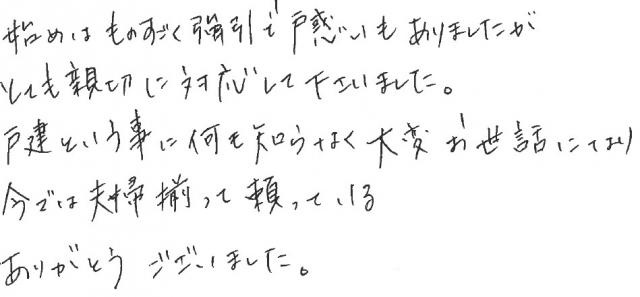 始めはものすごく強引で戸惑いもありましたが
とても親切に対応して下さいました。
戸建という事に何も知らなく大変お世話になり
今では夫婦揃って頼っている
ありがとうございました。